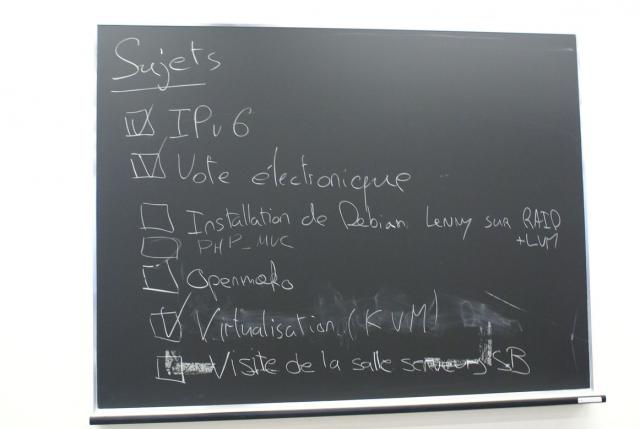 Sujets
IPv6
Vote électronique
Installation de Debian Lenny sur RAID
+LVM
PHP_MVC
Openmoko
Virtualisation (KVM)
Visite de la salle serveurs SB